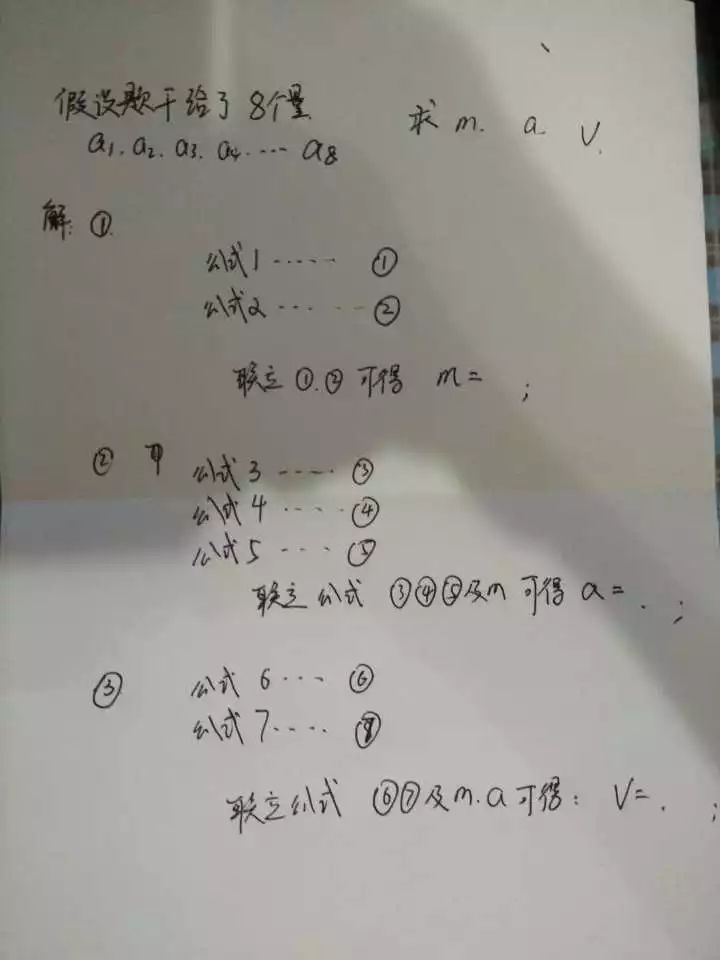 假设题干给了8个量 求 m. a. V.
a1. a2. a3. a4. ... a8
解: ①.
公式1 ...... ①
公式2 ... ... ②
联立 ①.② 可得 m= ;
②
公式3 ...... ③
公式4 ...... ④
公式5 .... ⑤
联立公式 ③④⑤及m 可得 a= . ;
③ 公式6 .... ⑥
公式7 ..... ⑦
联立公式 ⑥⑦及m.a可得: V= . ;